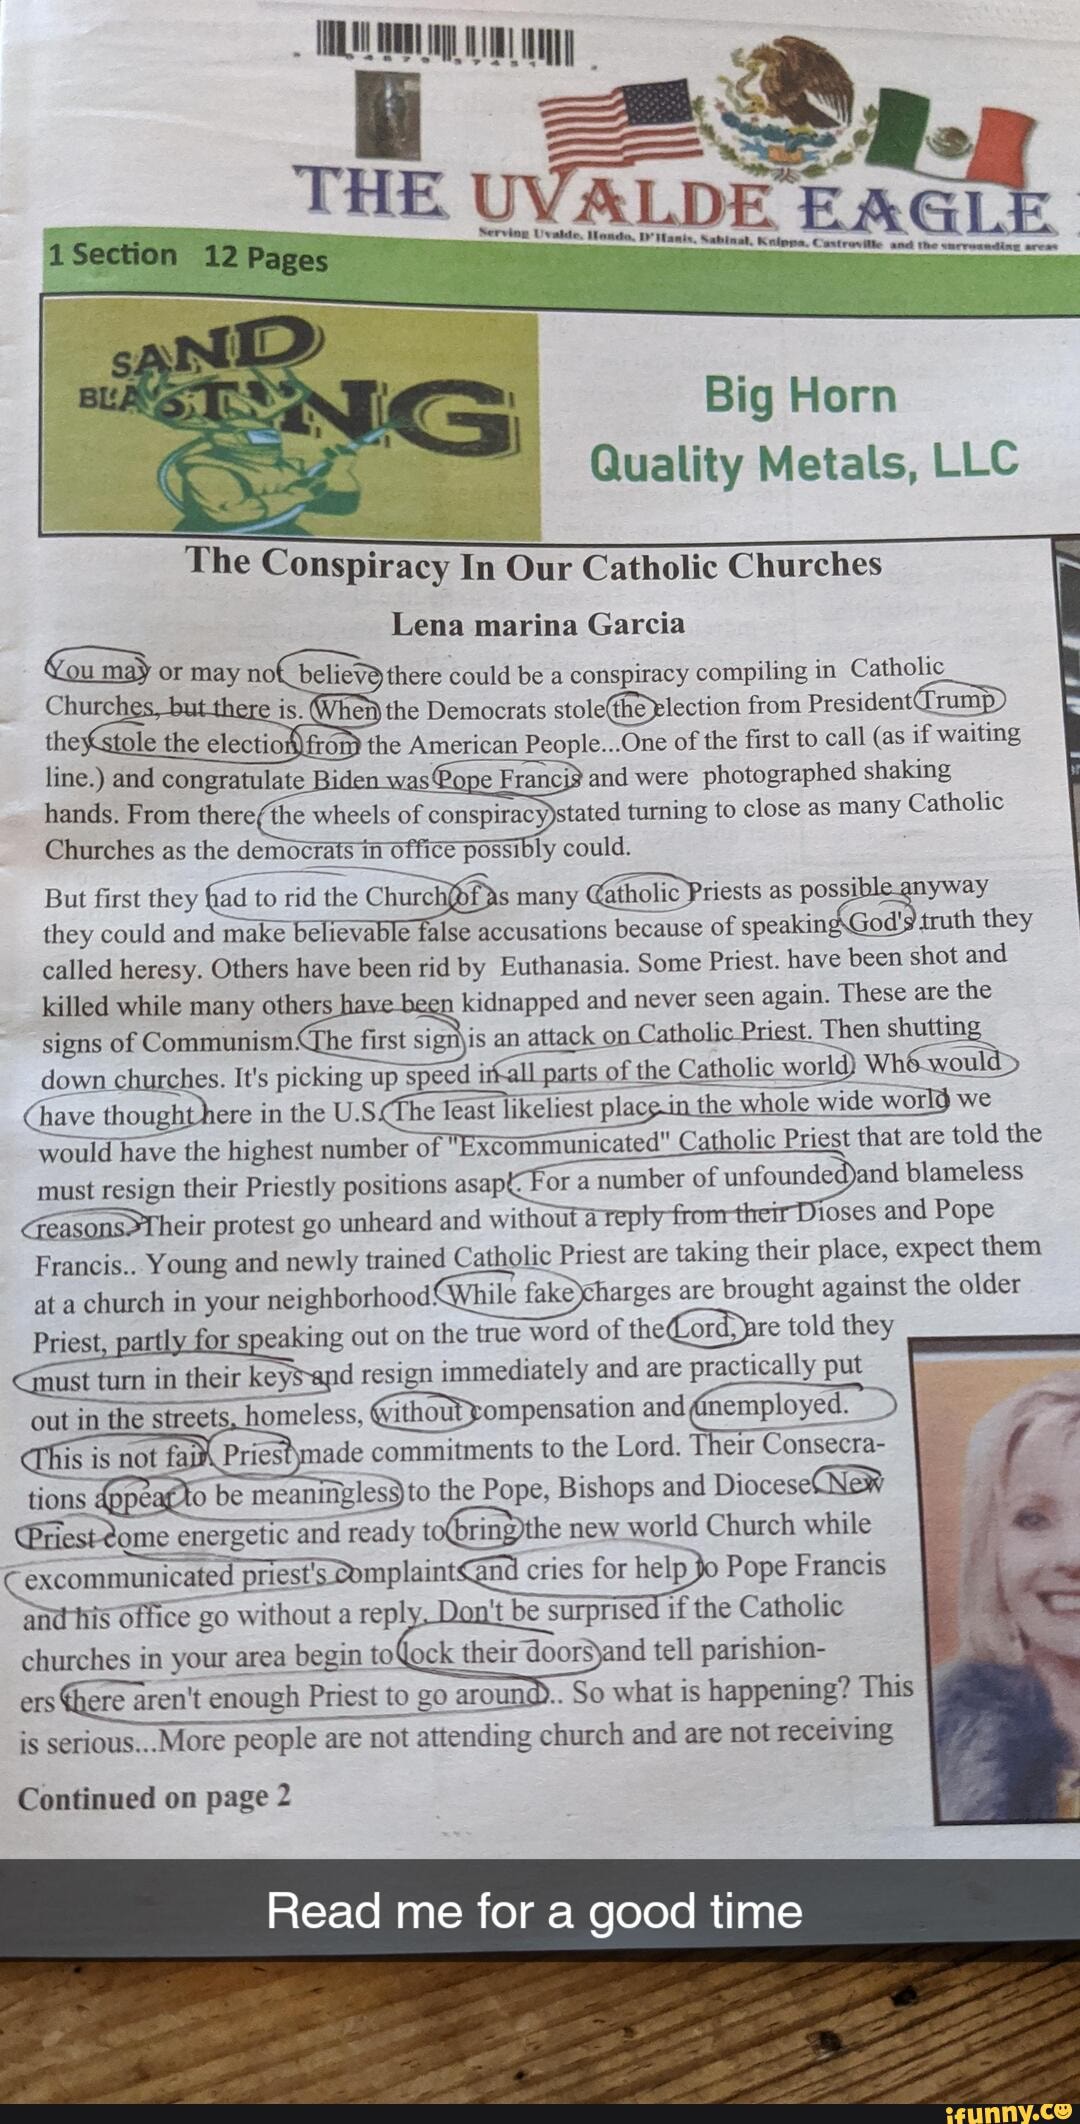 THE UVALDE EAGLE
Serving Uvalde, Hondo, D'Hanis, Sabinal, Knippa, Castroville and the surrounding areas
1 Section 12 Pages
SAND
BLASTING
Big Horn
Quality Metals, LLC
The Conspiracy In Our Catholic Churches
Lena marina Garcia
You may or may not believe there could be a conspiracy compiling in Catholic
Churches, but there is. When the Democrats stole the election from President Trump
they stole the election from the American People...One of the first to call (as if waiting
line.) and congratulate Biden was Pope Francis and were photographed shaking
hands. From there the wheels of conspiracy stated turning to close as many Catholic
Churches as the democrats in office possibly could.
But first they had to rid the Church of as many Catholic Priests as possible anyway
they could and make believable false accusations because of speaking God's truth they
called heresy. Others have been rid by Euthanasia. Some Priest. have been shot and
killed while many others have been kidnapped and never seen again. These are the
signs of Communism. The first sign is an attack on Catholic Priest. Then shutting
down churches. It's picking up speed in all parts of the Catholic world Who would
have thought here in the U.S. The least likeliest place in the whole wide world we
would have the highest number of "Excommunicated" Catholic Priest that are told the
must resign their Priestly positions asap. For a number of unfounded and blameless
reasons. Their protest go unheard and without a reply from their Dioses and Pope
Francis.. Young and newly trained Catholic Priest are taking their place, expect them
at a church in your neighborhood. While fake charges are brought against the older
Priest, partly for speaking out on the true word of the Lord, are told they
must turn in their keys and resign immediately and are practically put
out in the streets, homeless, without compensation and unemployed.
This is not fair. Priest made commitments to the Lord. Their Consecra-
tions appear to be meaningless to the Pope, Bishops and Diocese. New
Priest come energetic and ready to bring the new world Church while
excommunicated priest's complaints and cries for help to Pope Francis
and his office go without a reply. Don't be surprised if the Catholic
churches in your area begin to lock their doors and tell parishion-
ers there aren't enough Priest to go around.. So what is happening? This
is serious...More people are not attending church and are not receiving
Continued on page 2
Read me for a good time
ifunny.co